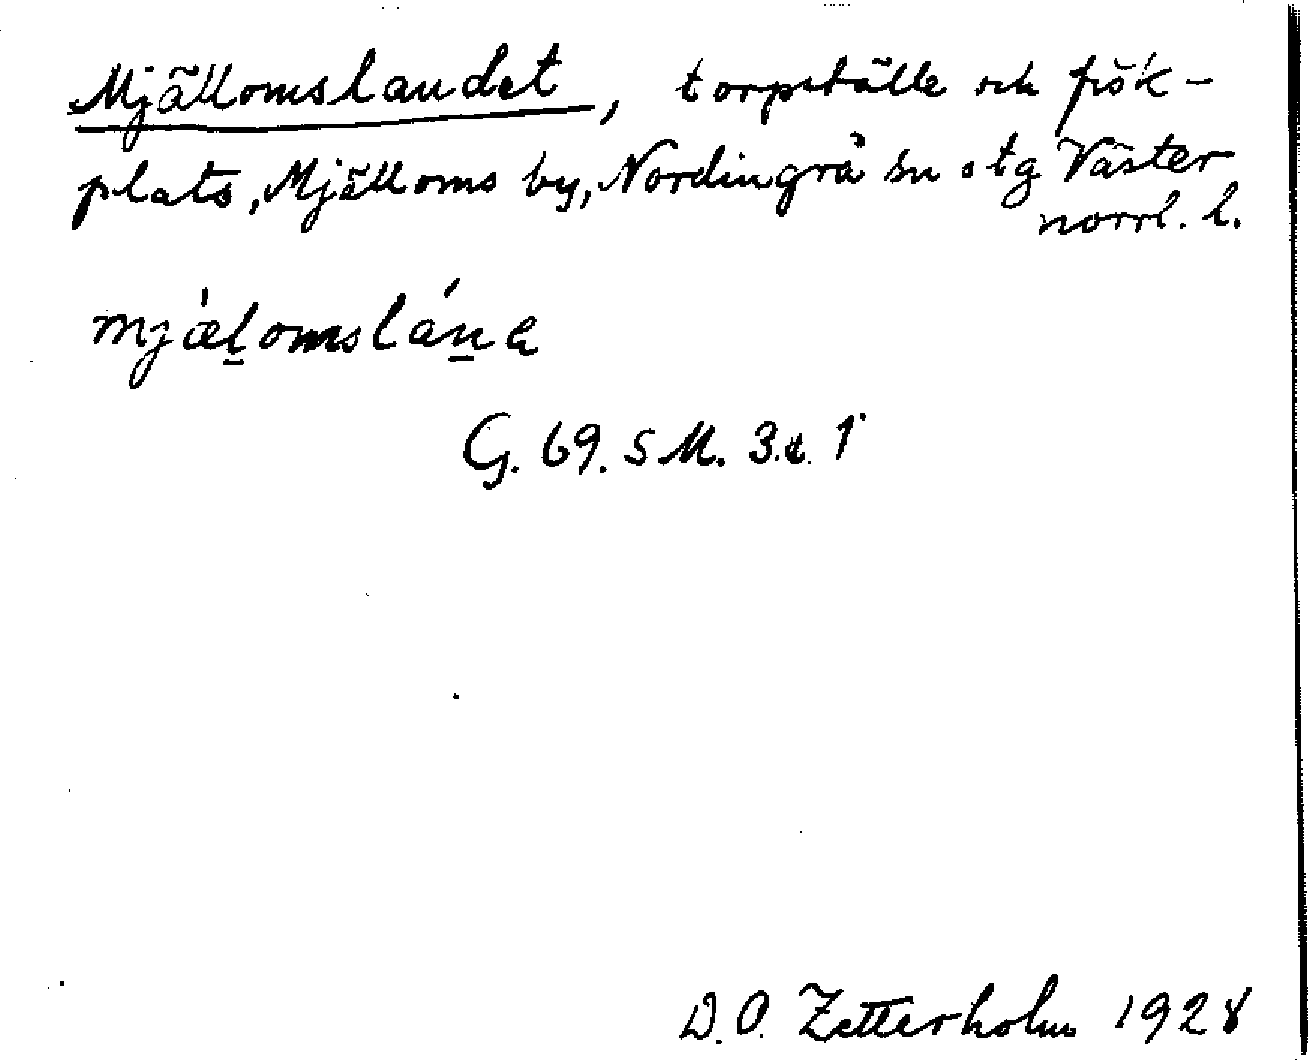 Mjällomslandet, torpställe och fisk-
plats, Mjälloms by, Nordingrå sn o tg Väster
norrl. l.
mjæ̀l̠omslán̠e
G. 69. S M. 3. e. 1
D. O. Zetterholm 1928